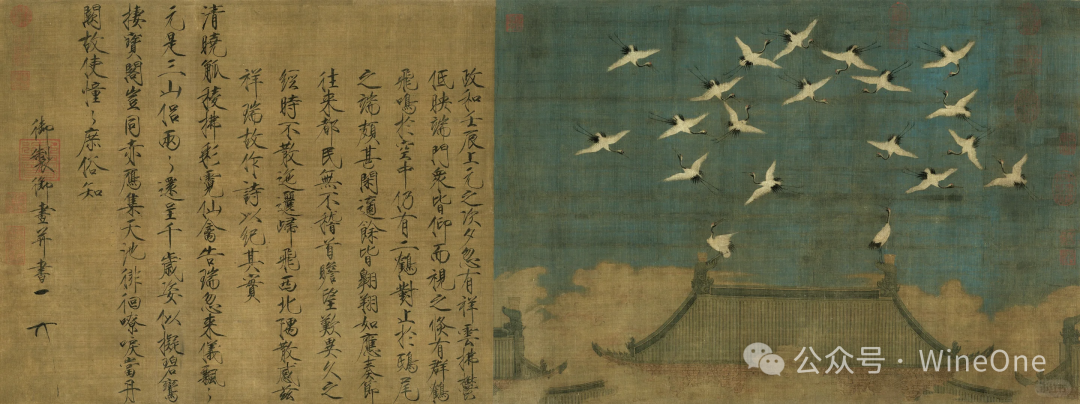 政和壬辰上元之次夕忽有祥雲拂鬱
低映端門衆皆仰而視之倏有群鶴
飛鳴於空中仍有二鶴對止於鴟尾
之端頗甚閑適餘皆翱翔如應奏節
往來都民無不稽首瞻望歎異久之
經時不散迤邐歸飛西北隅散感茲
祥瑞故作詩以紀其實
清曉觚稜拂彩霓仙禽告瑞忽來儀飄々
元是三山侶兩々還呈千歲姿似擬碧鸞
棲寶閣豈同赤鴈集天池徘徊嘹唳當丹
闕故使憧々庶俗知
御製御畫并書
公众号 · WineOne